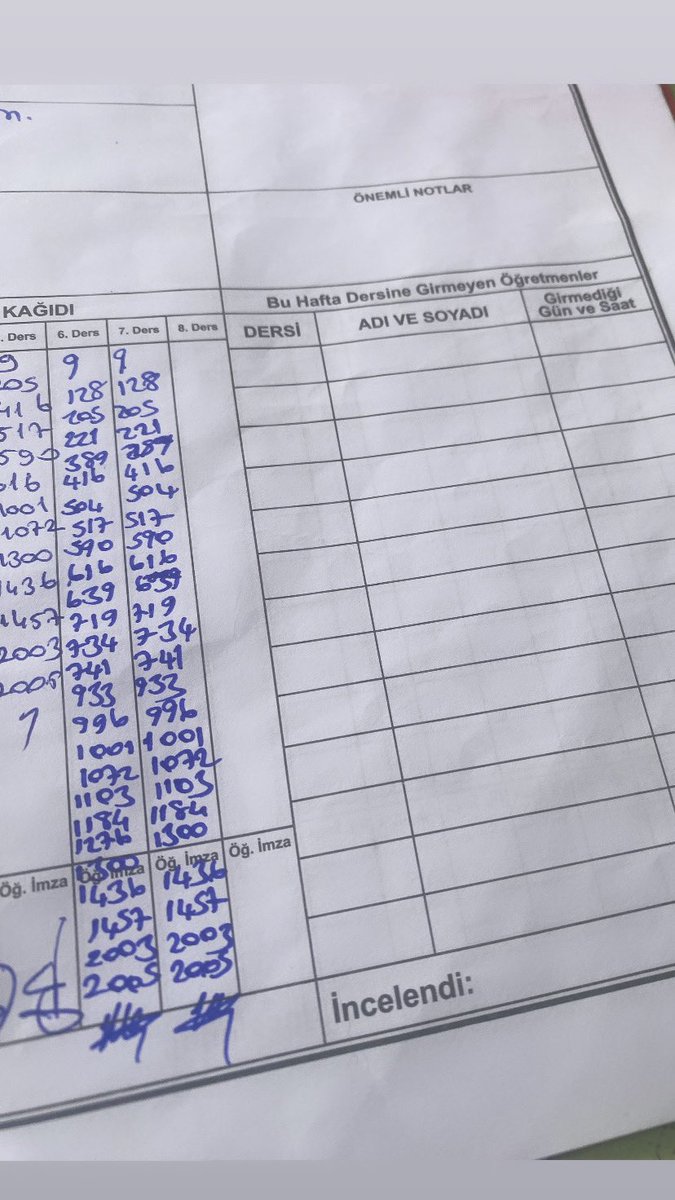 ÖNEMLİ NOTLAR
KAĞIDI Bu Hafta Dersine Girmeyen Öğretmenler
. Ders 6. Ders 7. Ders 8. Ders DERSİ ADI VE SOYADI Girmediği
Gün ve Saat
9 9 9
205 128 128
416 205 205
517 221 221
590 389
616 416 416
1001 504 504
1072 517 517
1300 590 590
1436 616 616
639 639
1457 719 719
2003 734 734
2005 741 741
933 933
996 996
1001 1001
1072 1072
1103 1103
1184 1184
1276 1300
1300
Öğ. İmza Öğ. İmza Öğ. İmza Öğ. İmza
1436 1436
1457 1457
2003 2003
2005 2005
İncelendi: